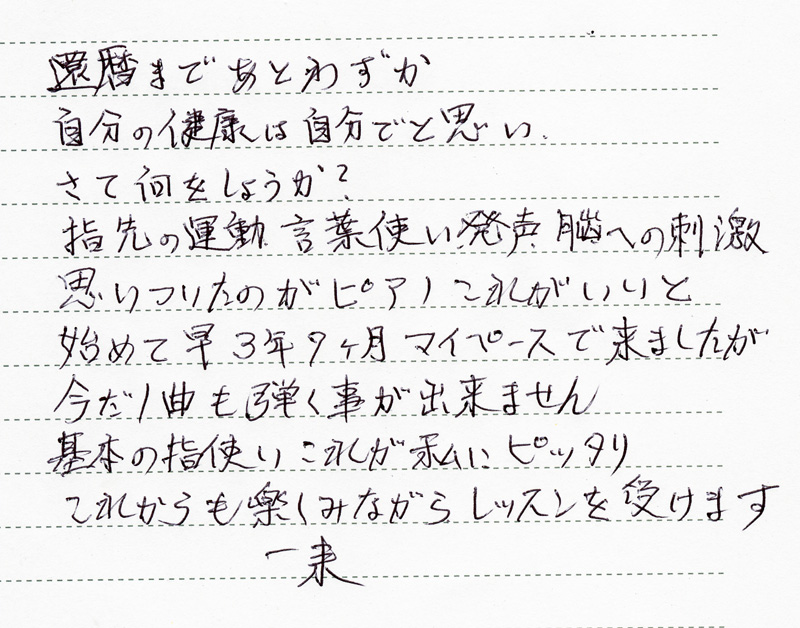 還暦まであとわずか
自分の健康は自分でと思い、
さて何をしようか?
指先の運動 言葉使い 発声 脳への刺激
思いついたのがピアノ これがいいと
始めて早3年9ヶ月 マイペースで来ましたが
今だ1曲も弾く事が出来ません
基本の指使い これが私にピッタリ
これからも楽しみながらレッスンを受けます
一来